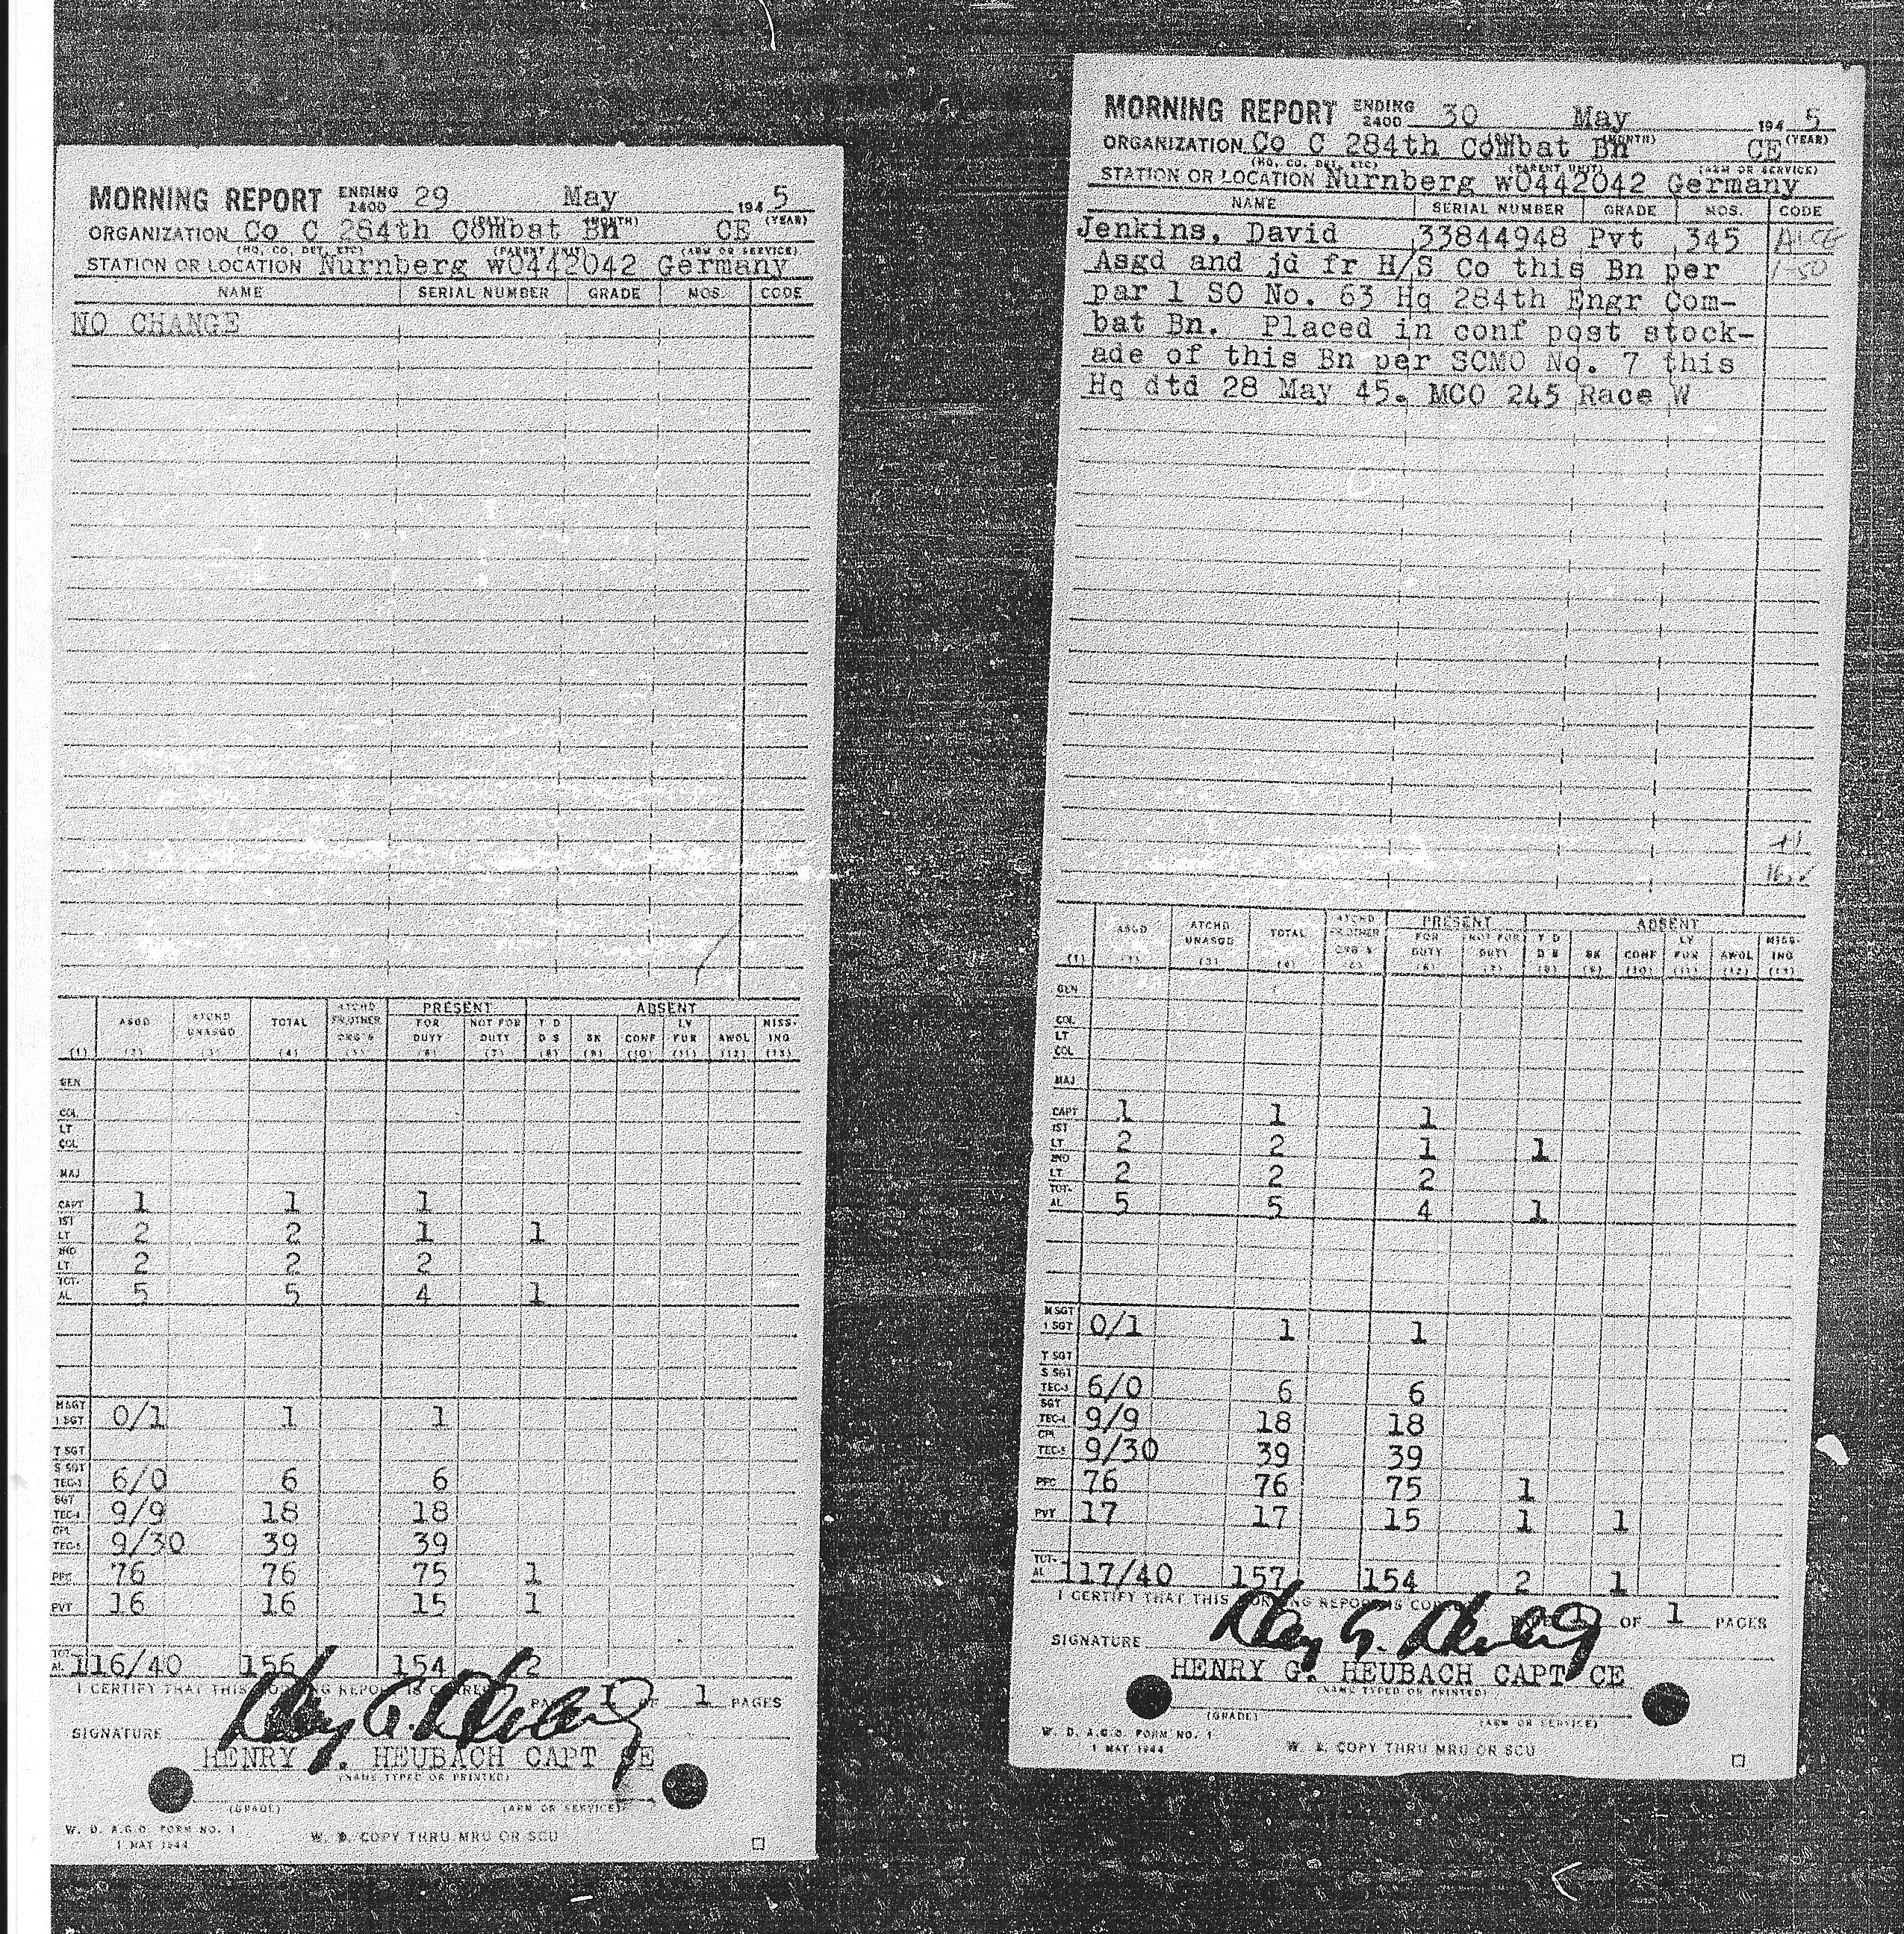 MORNING REPORT ENDING 2400 29 May 194 5
(DAY) (MONTH) (YEAR)
ORGANIZATION Co C 284th Combat Bn CE
(HQ, CO, DET, ETC) (PARENT UNIT) (ARM OR SERVICE)
STATION OR LOCATION Nurnberg wO442042 Germany
NAME SERIAL NUMBER GRADE MOS. CODE
NO CHANGE
PRESENT ABSENT
ASGD ATCHD UNASGD TOTAL ATCHD FR OTHER ORG'S FOR DUTY NOT FOR DUTY T D D S SK CONF LV FUR AWOL MISS-ING
(1) (2) (3) (4) (5) (6) (7) (8) (9) (10) (11) (12) (13)
GEN
COL
LT COL
MAJ
CAPT 1 1 1
1ST LT 2 2 1 1
2ND LT 2 2 2
TOT-AL 5 5 4 1
M SGT 1 SGT 0/1 1 1
T SGT
S SGT TEC-3 6/0 6 6
SGT TEC-4 9/9 18 18
CPL TEC-5 9/30 39 39
PFC 76 76 75 1
PVT 16 16 15 1
TOT-AL 116/40 156 154 2
I CERTIFY THAT THIS MORNING REPORT IS CORRECT.
PAGE 1 OF 1 PAGES
SIGNATURE Henry G. Heubach
HENRY G. HEUBACH CAPT CE
(NAME TYPED OR PRINTED)
(GRADE) (ARM OR SERVICE)
W. D. A.G.O. FORM NO. 1
1 MAY 1944
W. D. COPY THRU MRU OR SCU
MORNING REPORT ENDING 2400 30 May 194 5
(MONTH) (YEAR)
ORGANIZATION Co C 284th Combat Bn CE
(HQ, CO, DET, ETC) (PARENT UNIT) (ARM OR SERVICE)
STATION OR LOCATION Nurnberg wO442042 Germany
NAME SERIAL NUMBER GRADE MOS. CODE
Jenkins, David 33844948 Pvt 345
Asgd and jd fr H/S Co this Bn per
par 1 SO No. 63 Hq 284th Engr Com-
bat Bn. Placed in conf post stock-
ade of this Bn per SCMO No. 7 this
Hq dtd 28 May 45. MCO 245 Race W
+1
PRESENT ABSENT
ASGD ATCHD UNASGD TOTAL ATCHD FR OTHER ORG'S FOR DUTY NOT FOR DUTY T D D S SK CONF LV FUR AWOL MISS-ING
(1) (2) (3) (4) (5) (6) (7) (8) (9) (10) (11) (12) (13)
GEN
COL
LT COL
MAJ
CAPT 1 1 1
1ST LT 2 2 1 1
2ND LT 2 2 2
TOT-AL 5 5 4 1
M SGT 1 SGT 0/1 1 1
T SGT
S SGT TEC-3 6/0 6 6
SGT TEC-4 9/9 18 18
CPL TEC-5 9/30 39 39
PFC 76 76 75 1
PVT 17 17 15 1 1
TOT-AL 117/40 157 154 2 1
I CERTIFY THAT THIS MORNING REPORT IS CORRECT.
PAGE 1 OF 1 PAGES
SIGNATURE Henry G. Heubach
HENRY G. HEUBACH CAPT CE
(NAME TYPED OR PRINTED)
(GRADE) (ARM OR SERVICE)
W. D. A.G.O. FORM NO. 1
1 MAY 1944
W. D. COPY THRU MRU OR SCU